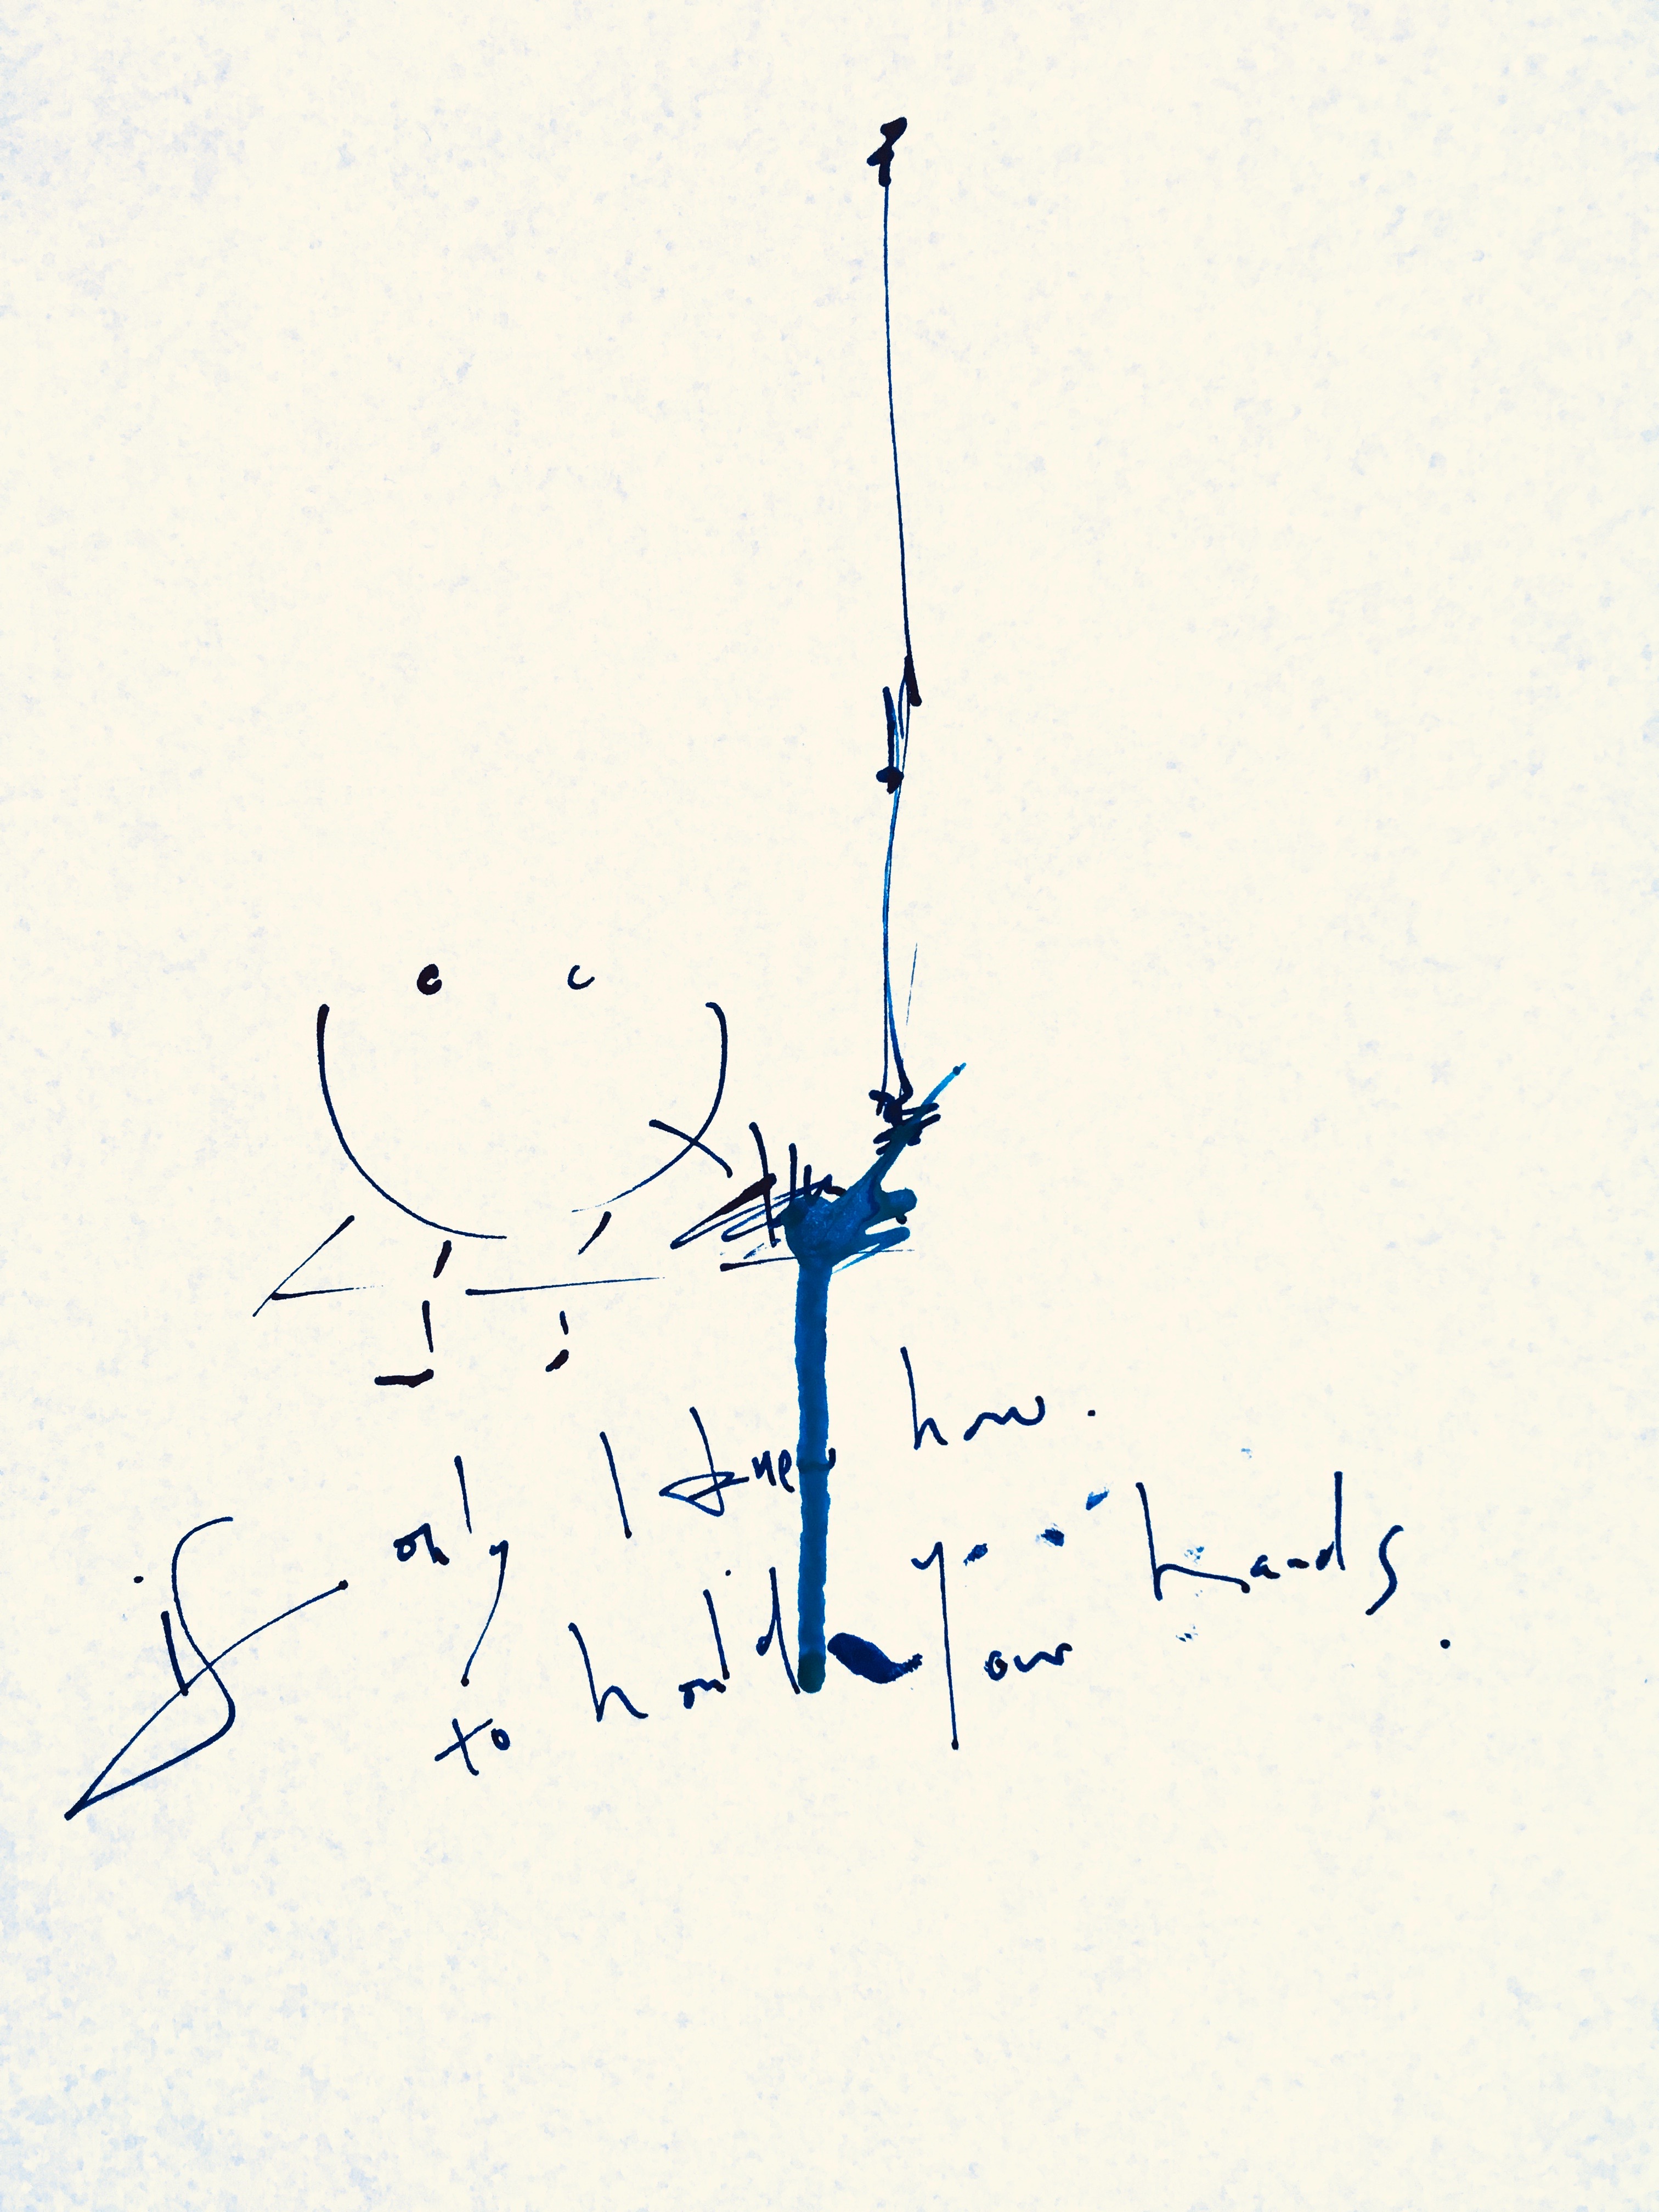 if only I knew how.
to hold your hands.